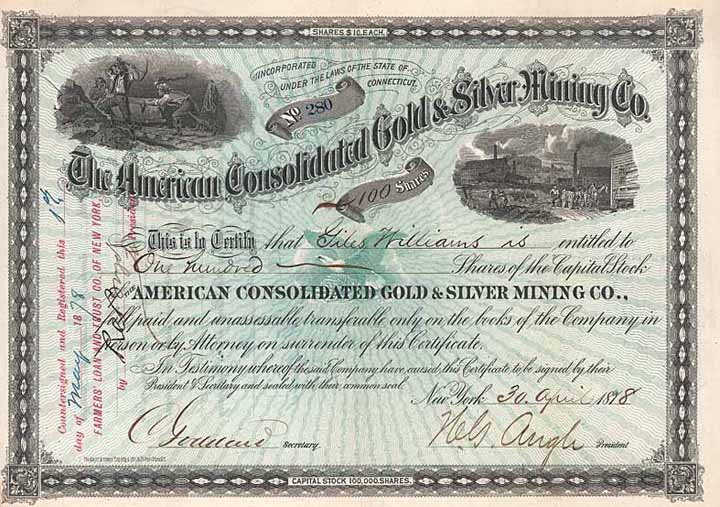 SHARES $10. EACH.
INCORPORATED
UNDER THE LAWS OF THE STATE OF
CONNECTICUT.
No. 280
The American Consolidated Gold & Silver Mining Co.
100 Shares
This is to Certify that Giles Williams is entitled to
One hundred Shares of the Capital Stock
AMERICAN CONSOLIDATED GOLD & SILVER MINING CO.,
full paid and unassessable transferable only on the books of the Company in
person or by Attorney on surrender of this Certificate.
In Testimony whereof the said Company have caused this Certificate to be signed by their
President & Secretary and sealed with their common seal.
New York 30 April 1878
Secretary.
President
CAPITAL STOCK 100,000 SHARES.
Countersigned and Registered this 1st
day of May 1878
FARMERS' LOAN AND TRUST CO. OF NEW YORK,
by President